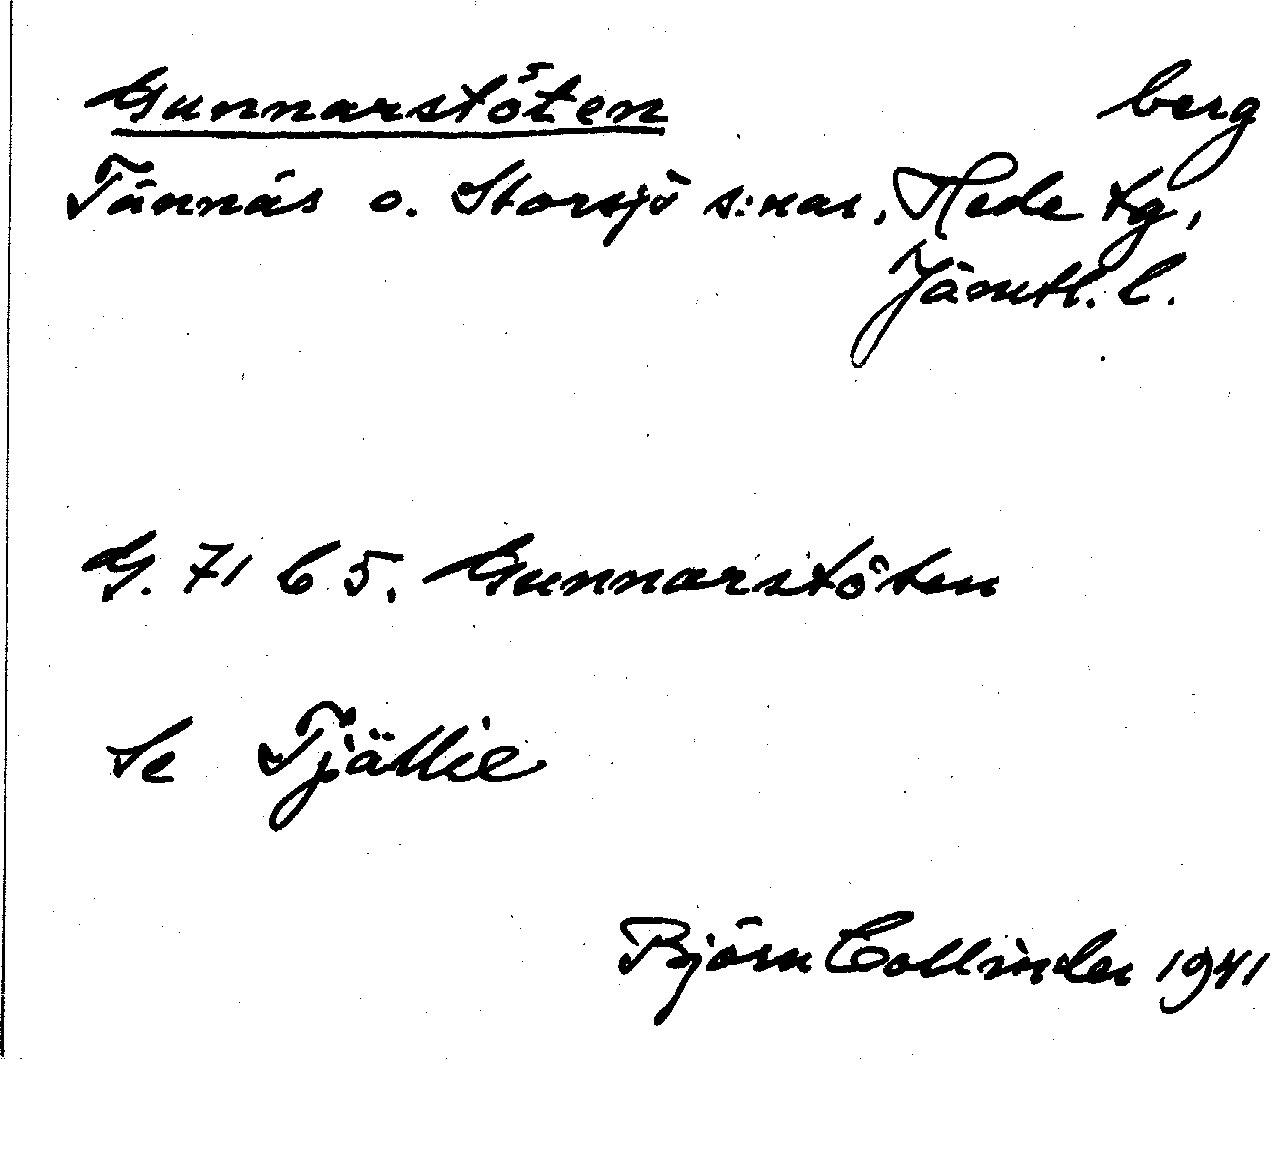 Gunnarstöten berg
Tännäs o. Storsjö s:nar, Hede tg,
Jämtl. l.
G. 71 b 5. Gunnarstöten
Se Tjällie
Björn Collinder 1941